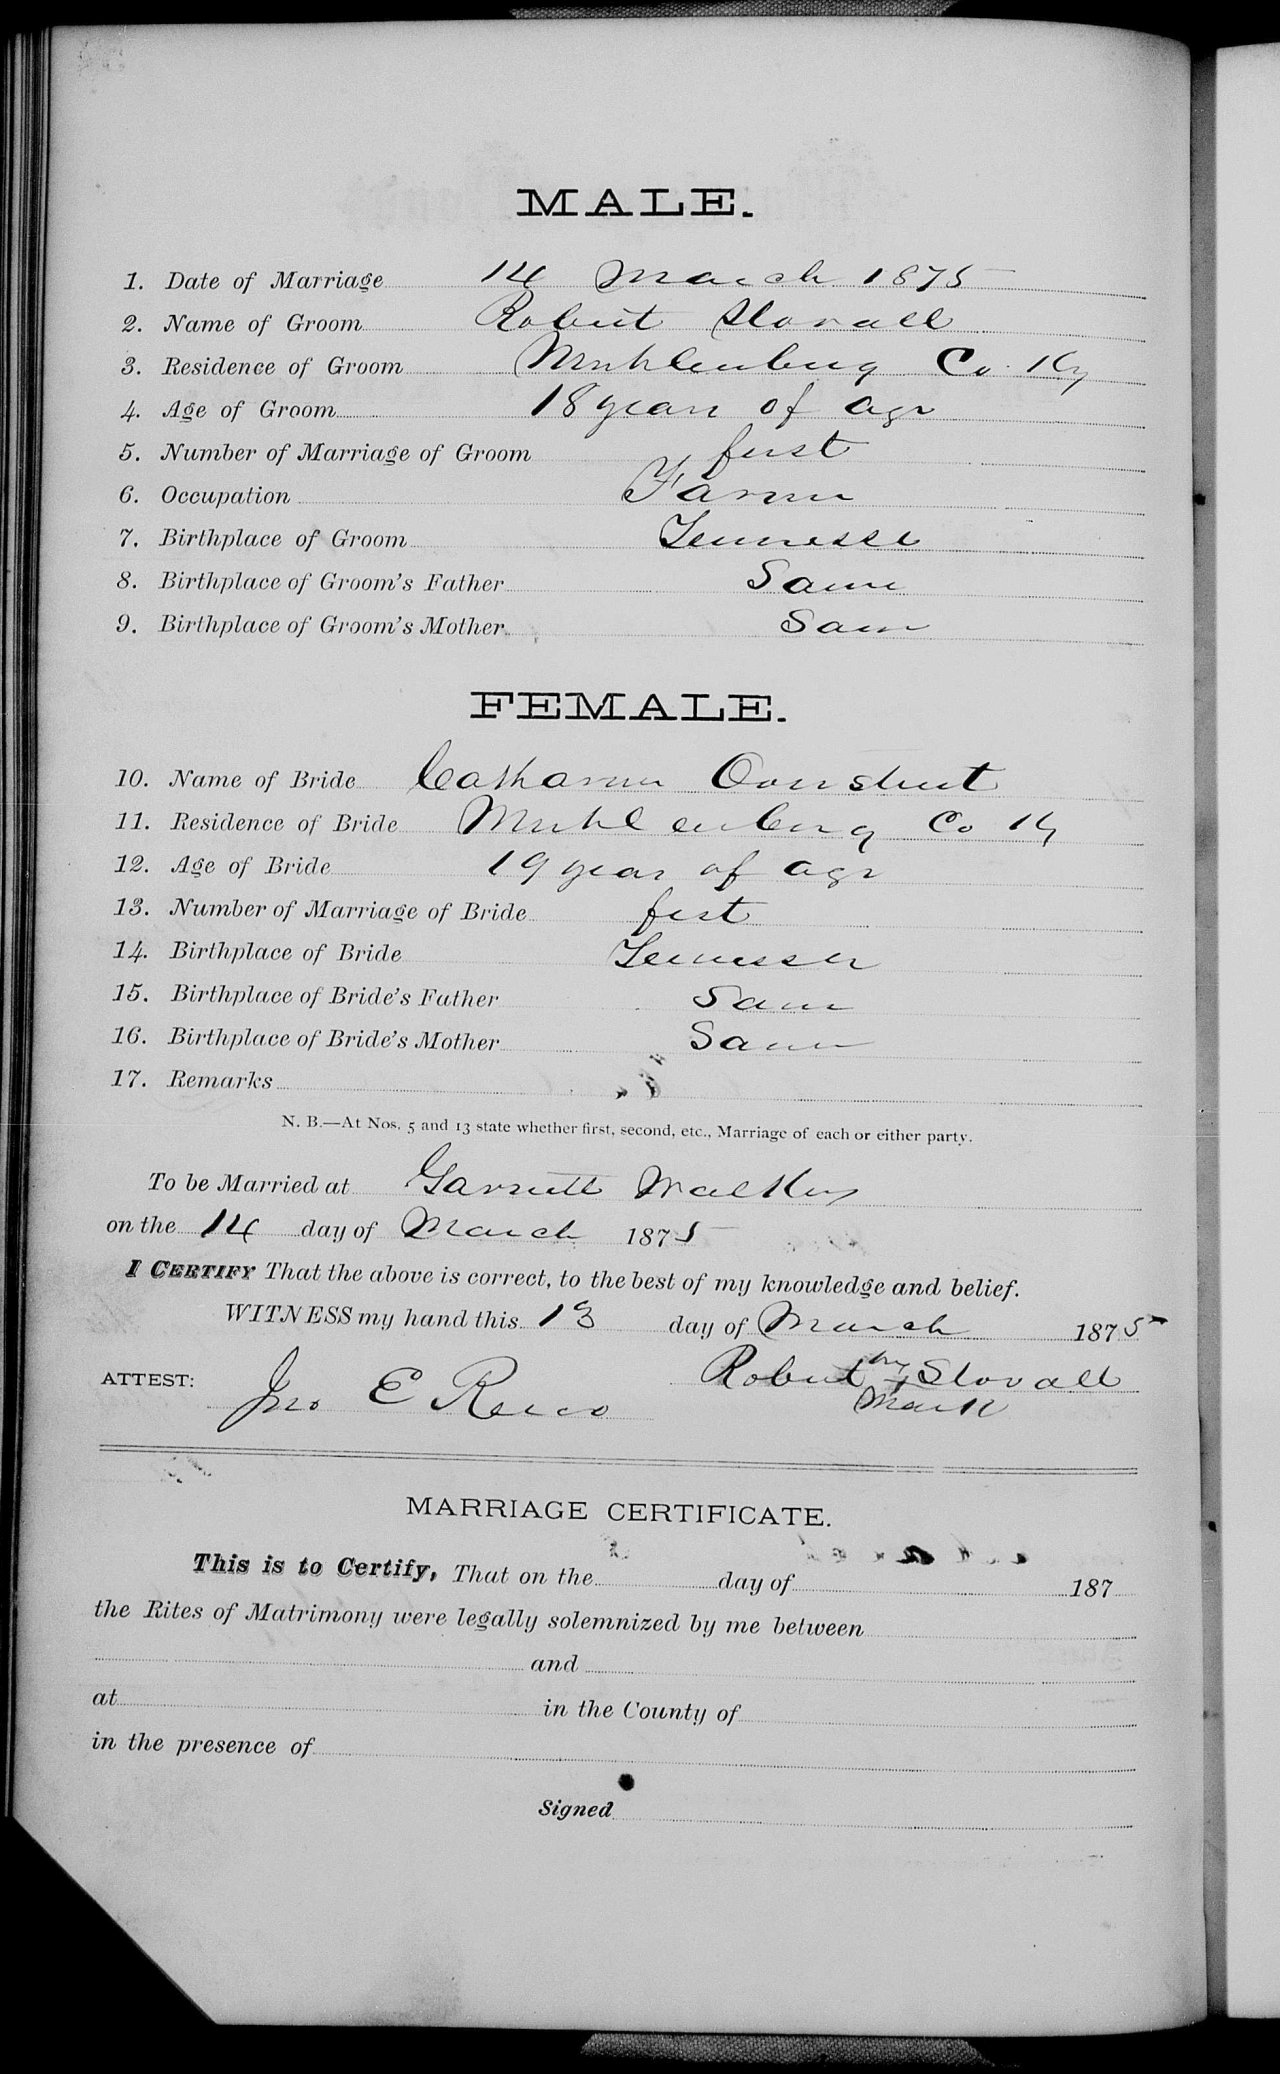 MALE.
1. Date of Marriage 14 March 1875
2. Name of Groom Robert Stovall
3. Residence of Groom Muhlenburg Co. Ky
4. Age of Groom 18 years of age
5. Number of Marriage of Groom first
6. Occupation Farmer
7. Birthplace of Groom Tennessee
8. Birthplace of Groom's Father Same
9. Birthplace of Groom's Mother Same
FEMALE.
10. Name of Bride Catharine Overstreet
11. Residence of Bride Muhlenburg Co Ky
12. Age of Bride 19 years of age
13. Number of Marriage of Bride first
14. Birthplace of Bride Tennessee
15. Birthplace of Bride's Father Same
16. Birthplace of Bride's Mother Same
17. Remarks
N. B.—At Nos. 5 and 13 state whether first, second, etc., Marriage of each or either party.
To be Married at Garrett Walkers
on the 14 day of March 1875
I CERTIFY That the above is correct, to the best of my knowledge and belief.
WITNESS my hand this 13 day of March 1875
ATTEST: Jno E Reno Robert his x Stovall
Mark
MARRIAGE CERTIFICATE.
This is to Certify, That on the day of 187
the Rites of Matrimony were legally solemnized by me between
and
at in the County of
in the presence of
Signed